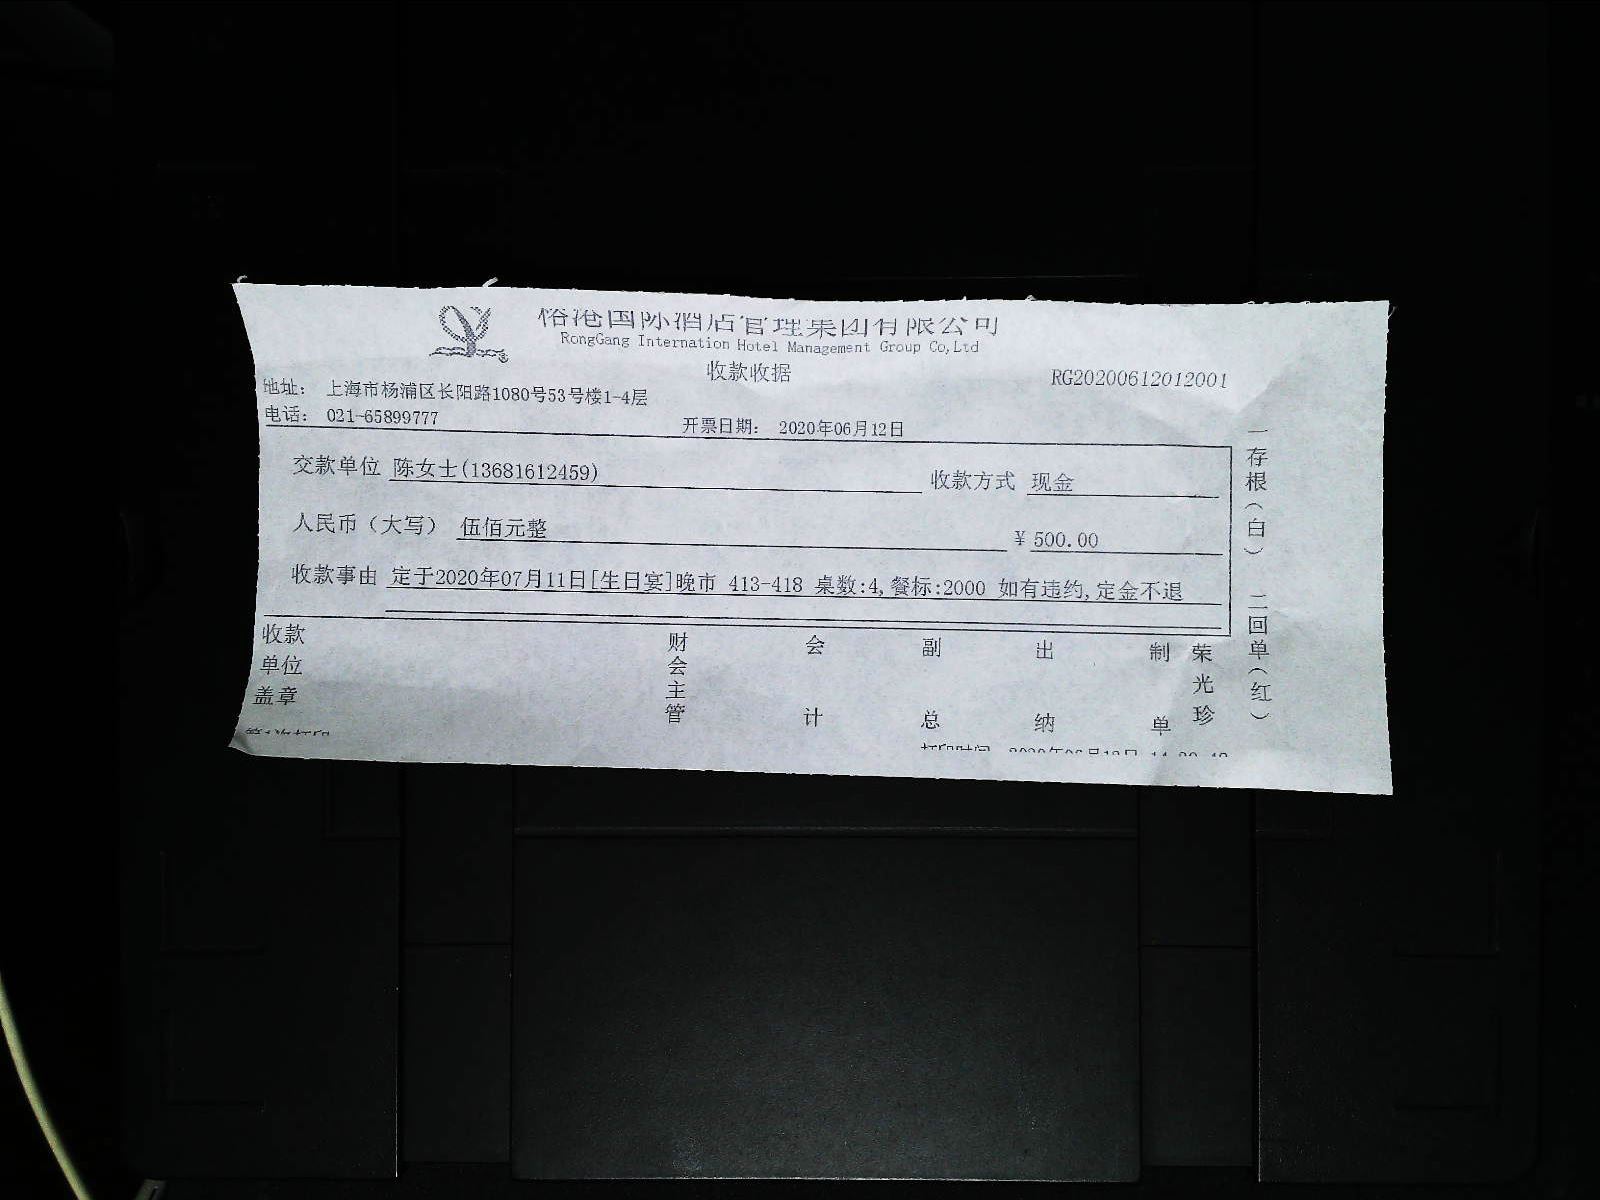 国际酒店管理集团有限公司
RongGang Internation Hotel Management Group Co,Ltd
收款收据
RG20200612012001
地址： 上海市杨浦区长阳路1080号53号楼1-4层
电话： 021-65899777
开票日期： 2020年06月12日
交款单位 陈女士(13681612459)
收款方式 现金
人民币（大写） 伍佰元整
¥ 500.00
收款事由 定于2020年07月11日[生日宴]晚市 413-418 桌数:4,餐标:2000 如有违约,定金不退
收款单位盖章
财会主管
会计
副总
出纳
制单
荣光珍
一存根（白） 二回单（红）